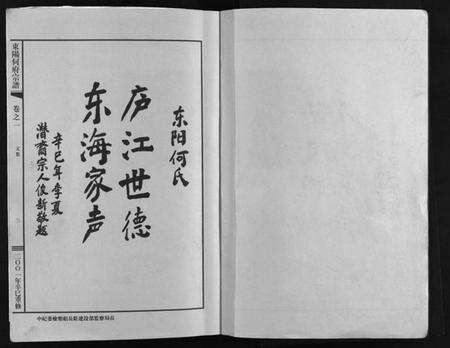 东阳何氏
庐江世德
东海家声
辛巳年季夏
潜斋宗人俊新敬题
東陽何府宗譜
卷之一
文集
二〇〇一年辛巳重修